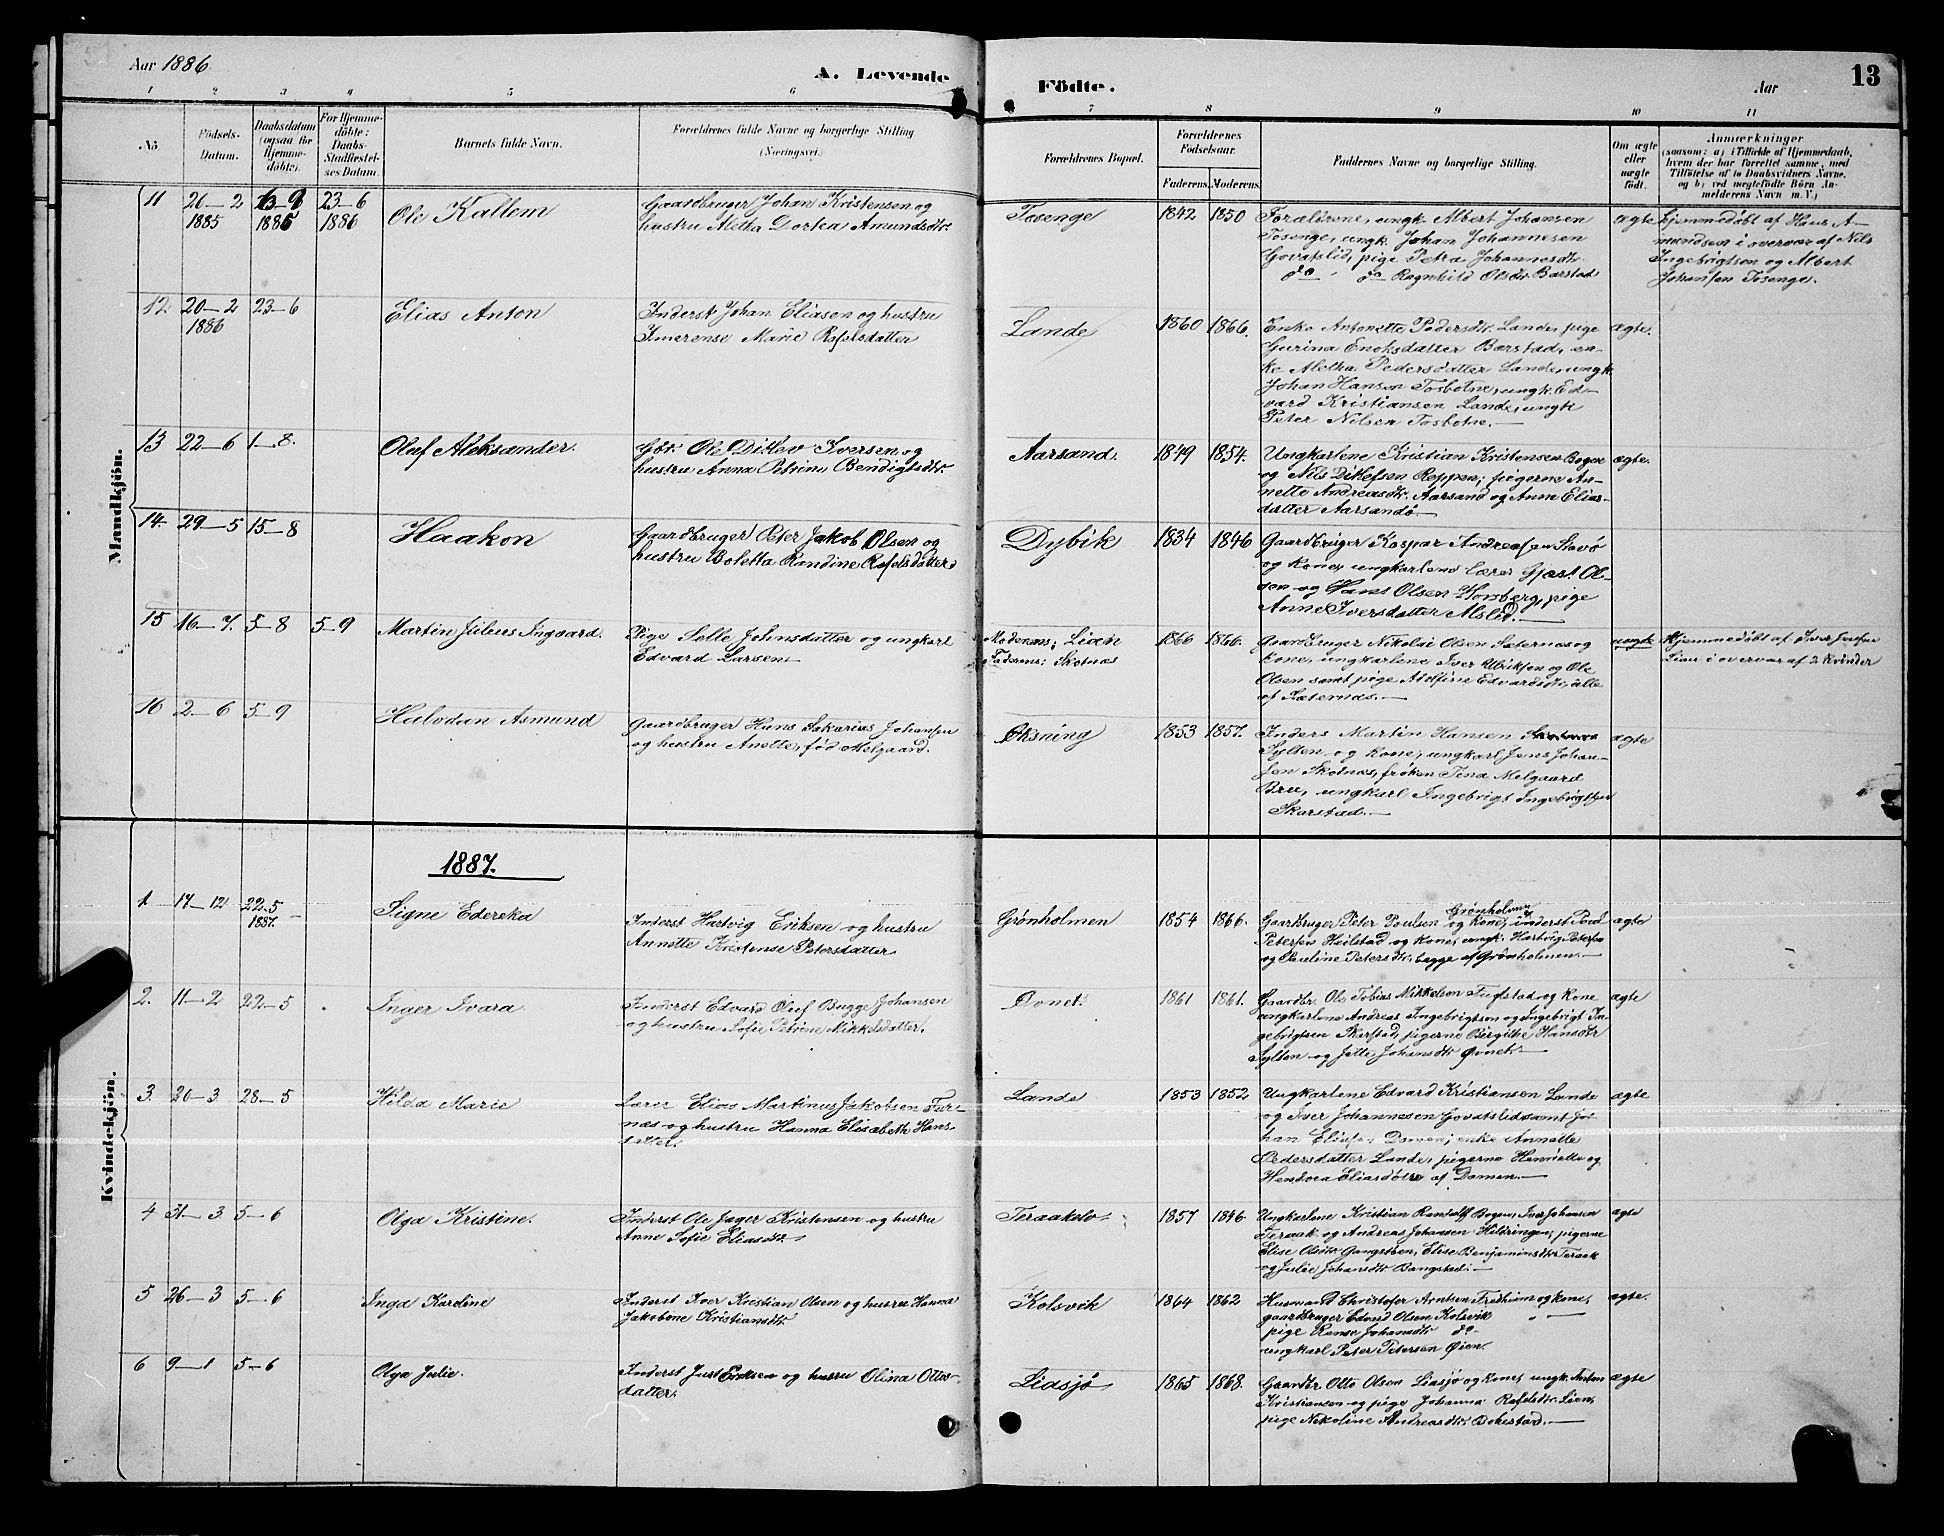 Aar 1886
A. Levende
Födte.
Aar
13
1 2 3 4 5 6 7 8 9 10 11
No
Födsels-
Datum.
Daabsdatum
(ogsaa for
Hjemme-
döbte).
For Hjemme-
döbte:
Daabs-
Stadfæstel-
ses Datum.
Barnets fulde Navn.
Forældrenes fulde Navne og borgerlige Stilling
(Næringsvei.)
Forældrenes Bopæl.
Forældrenes
Födselsaar.
Faderens. Moderens.
Faddernes Navne og borgerlige Stilling.
Om ægte
eller
uægte
födt.
Anmærkninger
(saasom: a) i Tilfælde af Hjemmedaab,
hvem der har forrettet samme, med
Tilföielse af to Daabsvidners Navne.
og b) ved uægtefödte Börn An-
melderens Navn m. V.)
Mandkjön.
11
1885
1886
23-6
1886
Ole Kallem
Gaardbruger Johan Kristensen og
hustru Aletha Dortea Amundsdtr.
Tosenge
1842 1850
Forældrene, ungk. Albert Johansen
Tosenge, ungk. Johan Johannesen
Govatslid, pige Petra Johannesdtr.
do do Regnhild Olsdtr Barstad
ægte
Hjemmedøbt af Hans A-
mundsen i overvær af Nils
Ingebrigtsen og Albert
Johansen Tosenge.
12
20-2
1886
23-6
Elias Anton
Inderst Johan Eliasen og hustru
Imerense Marie Rafelsdatter
Lande
1860 1866.
Enke Antonette Pedersdtr. Lande, pige
Gurina Enoksdatter Barstad, en-
ke Aletha Pedersdatter Lande, ungk.
Johan Hansen Tosbotne, ungk. Ed-
vard Kristiansen Lande, ungk
Peter Nilsen Tosbotne.
ægte.
13
22-6
1-8.
Oluf Aleksander.
Gbr. Ole Ditlev Iversen og
hustru Anna Petrine Bendigtsdtr.
Aarsand.
1849 1854.
Ungkarlene Kristian Kristensen Bogen
og Nils Ditlefsen Reppen; pigerne An-
nette Andreasdtr. Aarsand og Anne Elias-
datter Aarsandø
ægte.
14
29-5
15-8
Haakon
Gaardbruger Peter Jakob Olsen og
hustru Boletta Randine Rafelsdatter
Dybvik
1834 1846
Gaardbruger Kaspar Andreasen Stavø
og kone, ungkarlene lærer Gjest. Ol-
sen og Hans Olsen Horsberg, pige
Anne Iversdatter Alslid.
15
16-7.
5-8
5-9
Martin Julius Ingvard.
Pige Selle Johnsdatter og ungkarl
Edvard Larsen
Moderens; Lian
Faderens: Skotnæs
1866 1866.
Gaardbruger Nikolai Olsen Sæternæs og
kone, ungkarlene Iver Ulriksen og Ole
Olsen samt pige Adolfine Edvardsdtr. alle
af Sæternæs.
uægte
Hjemmedøbt af Iver Josefsen
Lian i overvær af 2 kvinder
16
2-6
5-9
Halvdan Asmund
Gaardbruger Hans Sakarias Johansen
og hustru Anette, fød Melgaard.
Øksning
1853 1857.
Inders Martin Hansen
Sylten og kone, ungkarl Jens Johan-
sen Skotnæs, frøken Tina Melgaard
Bru, ungkarl Ingebrigt Ingebrigtsen
Skarstad.
ægte
1887.
Kvindekjön.
1.
17-12
22-5
1887.
Signe Edereka
Inderst Hartvig Eriksen og hustru
Annette Kristense Petersdatter
Grønholmen
1854 1866.
Gaardbruger Peter Poulsen Grønholmen og kone, inderst Poul
Petersen Heilstad og kone, ungk. Hartvig Petersen
og Pauline Petersdtr. begge af Grønholmen.
ægte
2.
11-2
22-5
Inger Ivara
Inderst Edvard Oluf Bugge Johansen
og hustru Sofie Petrine Mikkelsdatter.
Øvnet.
1861 1861.
Gaardbr. Ole Tobias Mikkelsen Fuglstad og kone
ungkarlene Andreas Ingebrigtsen og Ingebrigt In-
gebrigtsen Skarstad, pigerne Birgithe Hansdtr
Sylten og Jette Johansdtr Øvnet.
ægte
3.
20-3
28-5
Hilda Marie
Lærer Elias Martinus Jakobsen Fur-
næs og hustru Hanna Elisabeth Hans-
datter.
Lande
1853 1852
Ungkarlene Edvard Kristiansen Lande
og Iver Johannesen Govatslid samt Jo-
han Eliasen Damen; enke Annette
Pedersdatter Lande, pigerne Henriette og
Hendora Eliasdøtre af Damen.
ægte
4
31-3
5-6
Olga Kristine.
Inderst Ole Jæger Kristensen og hustru
Anne Sofie Eliasdtr.
1857 1846.
Ungkarlene Kristian Randulf Bogen, Iver Johansen
Teraak og Andreas Johansen Hildringen, pigerne
Elise Olsdtr Gangstøen, Elise Benjaminsdtr Teraak
og Julie Johansdtr Bangstad.
ægte
5
26-3
5-6
Inga Karoline
Inderst Iver Kristian Olsen og hustru Hanna
Jakobine Kristiansdtr.
Kolsvik
1864 1862
Husmand Christofer Arntsen Fredheim og kone,
gaardbruger Edvard Olsen Kolsvik
pige Rense Johansdtr do
ungkarl Peter Petersen Øien.
ægte.
6
9-1
5-6
Olga Julie.
Inderst Just Eriksen og hustru Olina Ottos-
datter.
Liasjø
1865 1868.
Gaardbr. Otto Olsen Liasjø og kone, ungk. Anton
Kristiansen og pige Johanna Rafelsdtr. Lien,
pige Nikoline Andreasdtr.
ægte